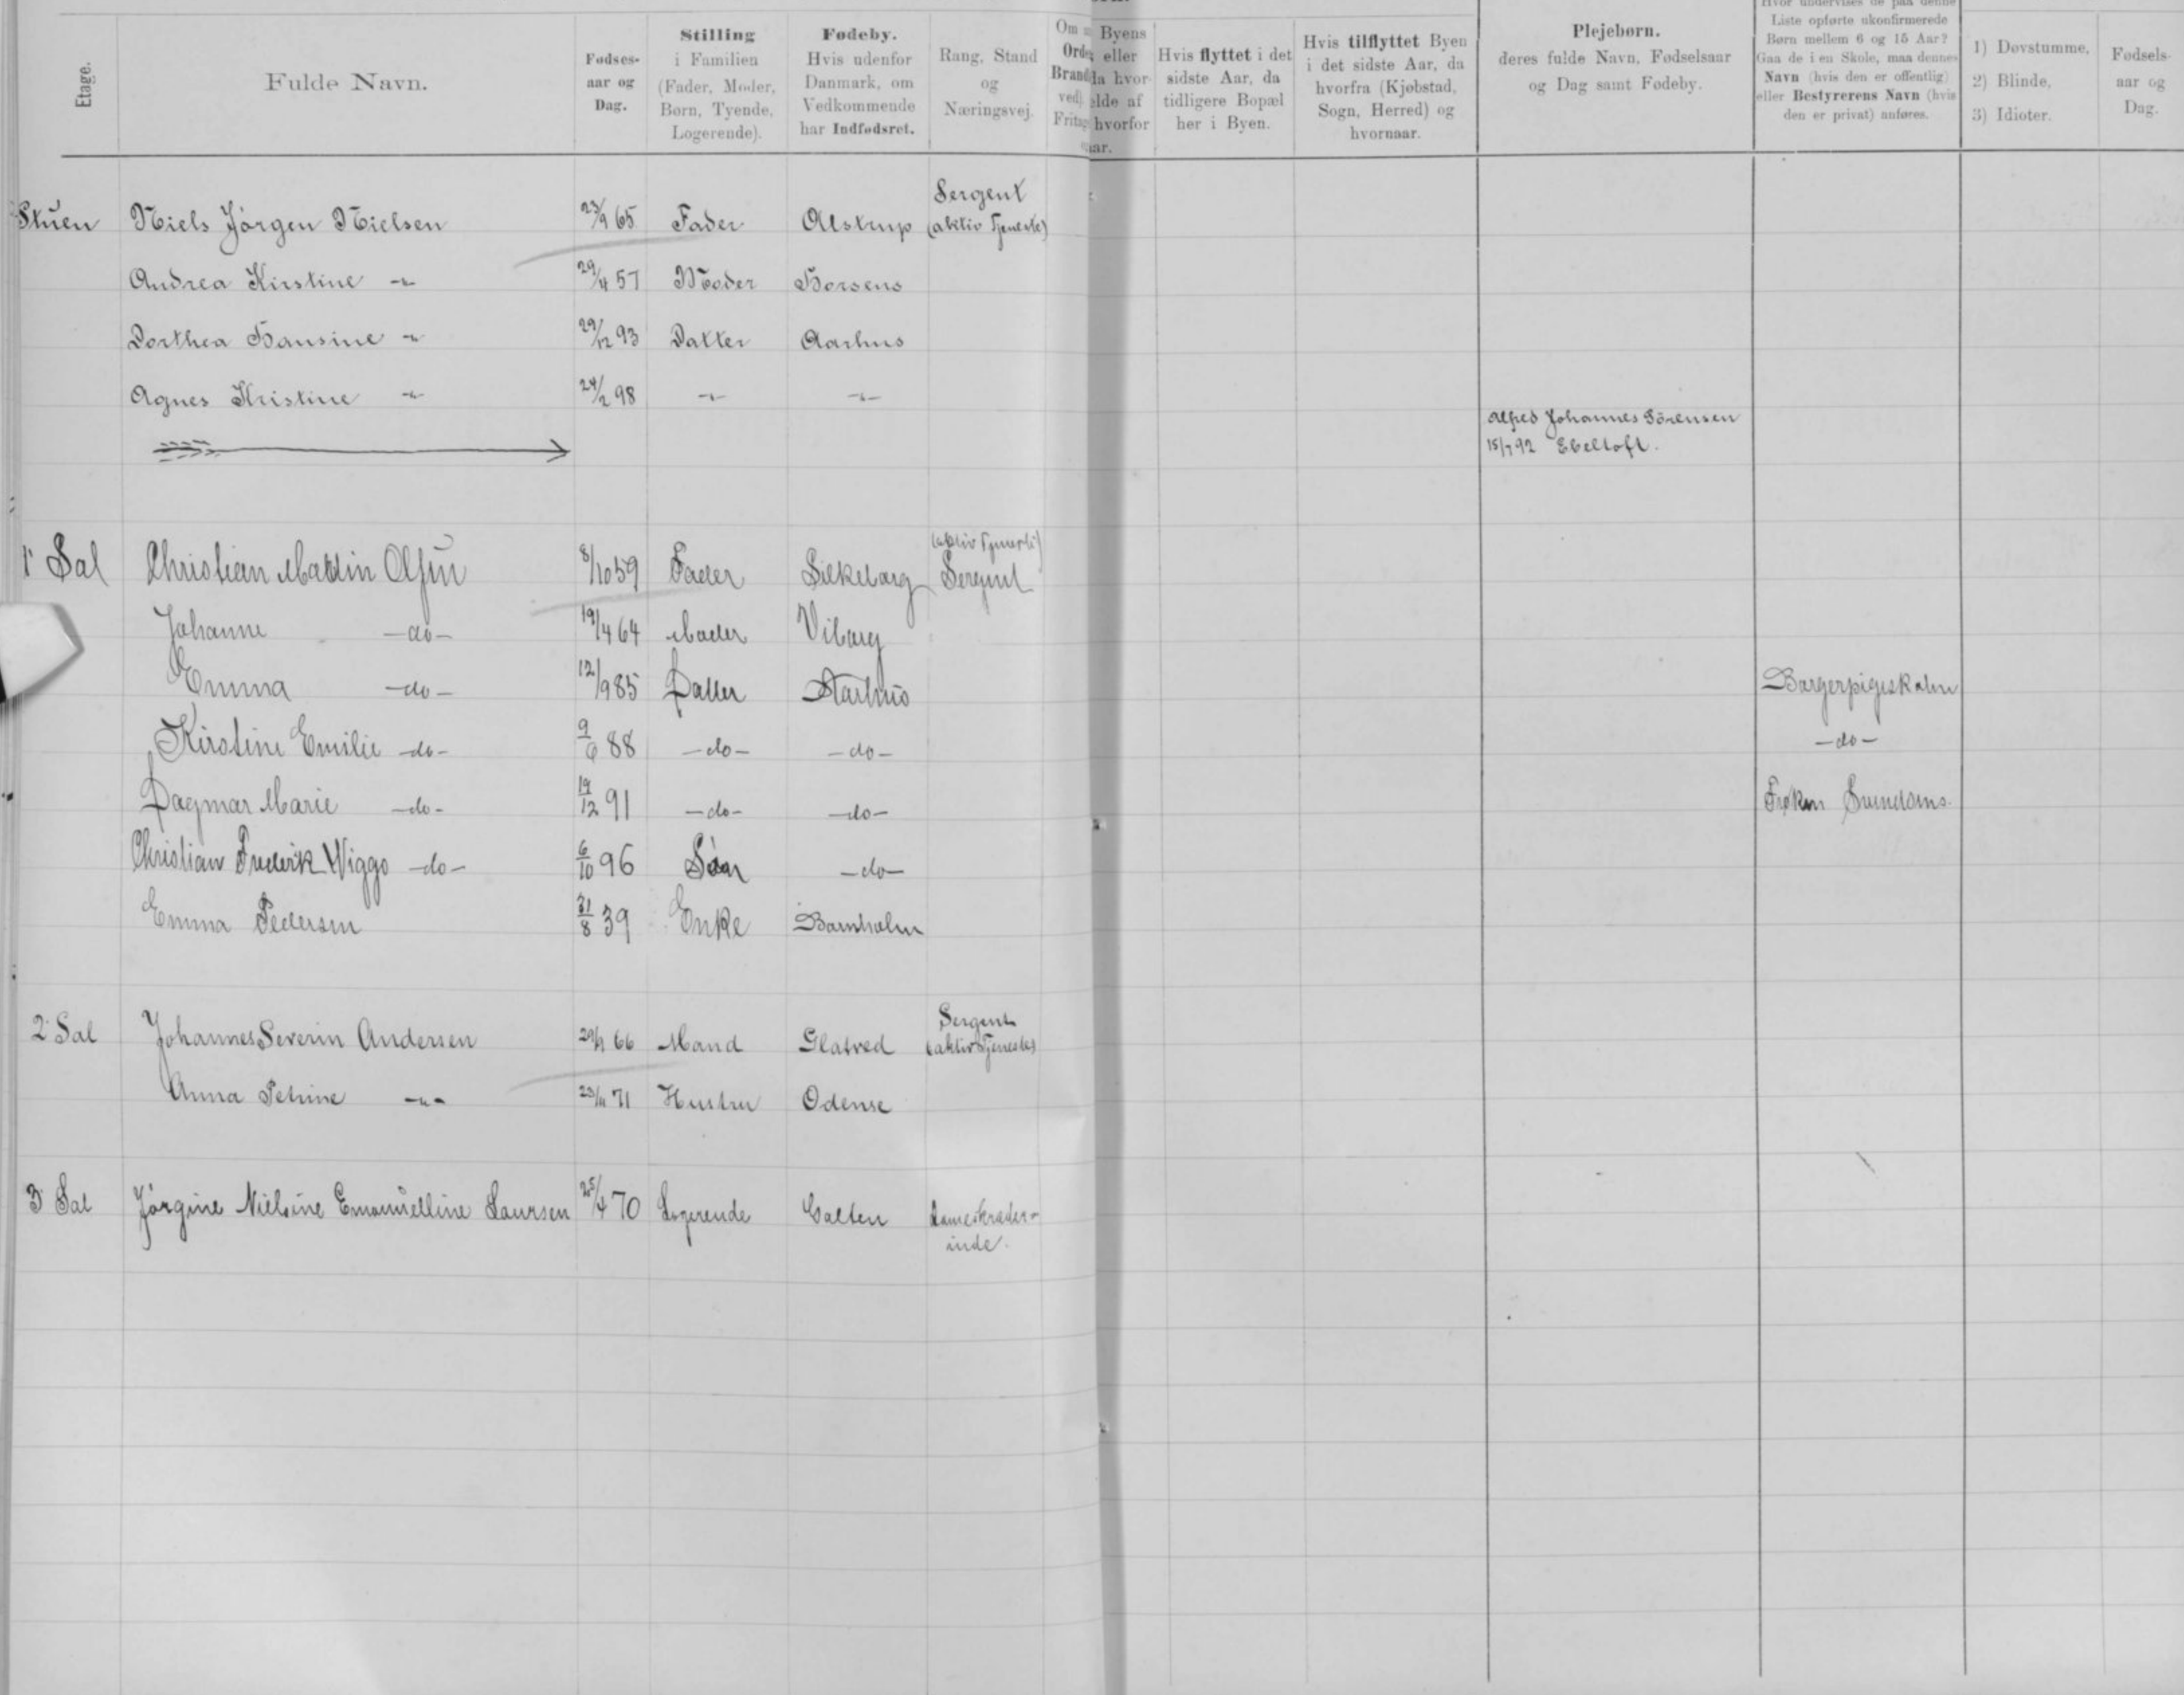 Etage.
Fulde Navn.
Fødses-
aar og
Dag.
Stilling
i Familien
(Fader, Moder,
Børn, Tyende,
Logerende).
Fødeby.
Hvis udenfor
Danmark, om
Vedkommende
har Indfødsret.
Rang, Stand
og
Næringsvej.
Om
Orde
Brand
ved)
Fritag
Byens
eller
da hvor-
elde af
hvorfor
aar.
Hvis flyttet i det
sidste Aar, da
tidligere Bopæl
her i Byen.
Hvis tilflyttet Byen
i det sidste Aar, da
hvorfra (Kjøbstad,
Sogn, Herred) og
hvornaar.
Plejebørn.
deres fulde Navn, Fødselsaar
og Dag samt Fødeby.
Hvor undervises de paa denne
Liste opførte ukonfirmerede
Børn mellem 6 og 15 Aar?
Gaa de i en Skole, maa dennes
Navn (hvis den er offentlig)
eller Bestyrerens Navn (hvis
den er privat) anføres.
1) Døvstumme,
2) Blinde,
3) Idioter.
Fødsels-
aar og
Dag.
Stuen Niels Jörgen Nielsen 23/9 65 Fader Alstrup Sergent
(aktiv Tjeneste)
Andrea Kirstine -"- 29/4 57 Moder Horsens
Dorthea Hansine -"- 29/12 93 Datter Aarhus
Agnes Kristine -"- 24/2 98 -"- -"-
Alfred Johannes Sörensen
15/7 92 Ebeltoft.
1' Sal Christian Martin Olsen 8/10 59 Fader Silkeborg (aktiv Tjeneste)
Sergent
Johanne -do- 19/4 64 Moder Viborg
Emma -do- 12/9 85 Datter Aarhus Borgerpigeskolen
Kirstine Emilie -do- 9/6 88 -do- -do- -do-
Dagmar Marie -do- 19/12 91 -do- -do- Frøken Svendsens.
Christian Frederik Wiggo -do- 6/10 96 Søn -do-
Emma Pedersen 31/8 39 Enke Bornholm
2' Sal Johannes Severin Andersen 29/9 66 Mand Glatved Sergent
(aktiv Tjeneste)
Anna Petrine -"- 23/11 71 Hustru Odense
3' Sal Jörgine Nielsine Emanuelline Laursen 25/4 70 Logerende Galten Dameskræder-
inde.